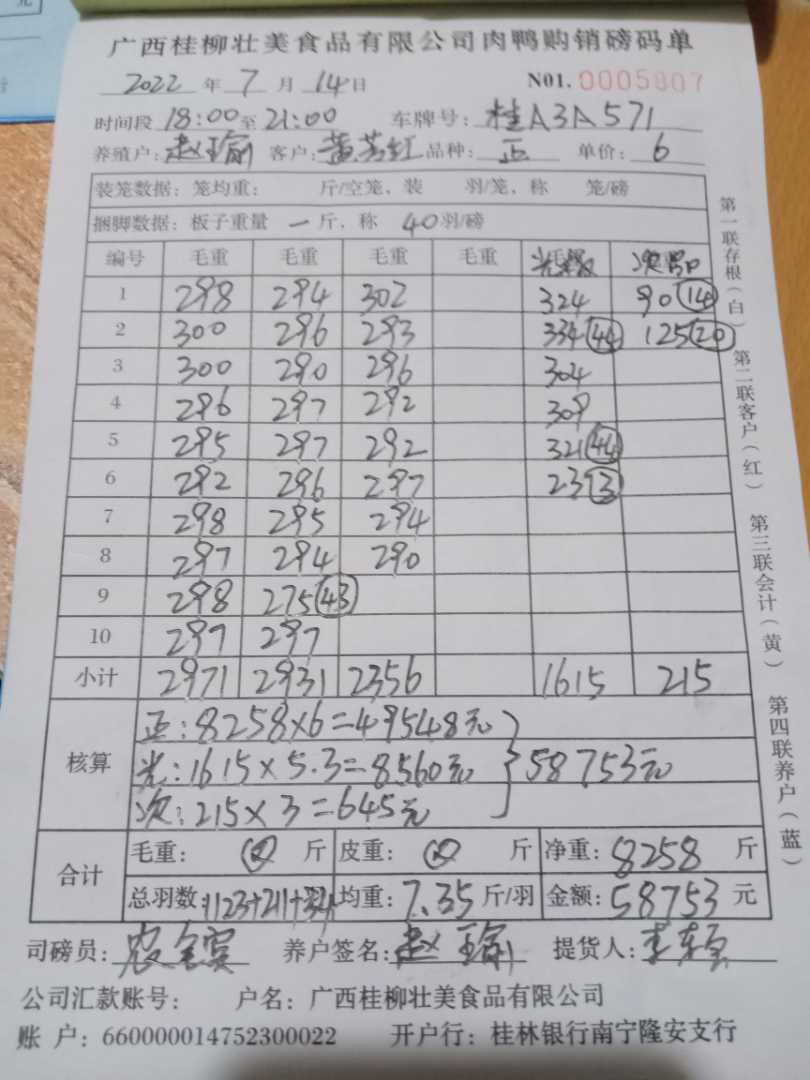 广西桂柳壮美食品有限公司肉鸭购销磅码单
2022 年 7 月 14 日 N01. 0005807
时间段 18:00 至 21:00 车牌号: 桂A3A571
养殖户: 赵瑜 客户: 黄芳红 品种: 正 单价: 6
装笼数据: 笼均重: 斤/空笼, 装 羽/笼, 称 笼/磅
捆脚数据: 板子重量 一 斤, 称 40 羽/磅
编号 毛重 毛重 毛重 毛重
1 298 294 302 324 90 (14)
2 300 296 293 334 (44) 125 (20)
3 300 290 296 304
4 296 297 292 309
5 295 297 292 321 (44)
6 292 296 297 23 (3)
7 298 295 294
8 297 294 290
9 298 275 (43)
10 297 297
小计 2971 2931 2356 1615 215
核算 正: 8258×6=49548元
光: 1615×5.3=8560元 } 58753元
次: 215×3=645元
合计 毛重: 斤 皮重: 斤 净重: 8258 斤
总羽数: 1123+211+34 均重: 7.35 斤/羽 金额: 58753 元
司磅员: 养户签名: 赵瑜 提货人:
公司汇款账号: 户名: 广西桂柳壮美食品有限公司
账 户: 660000014752300022 开户行: 桂林银行南宁隆安支行
第一联存根(白)
第二联客户(红)
第三联会计(黄)
第四联养户(蓝)